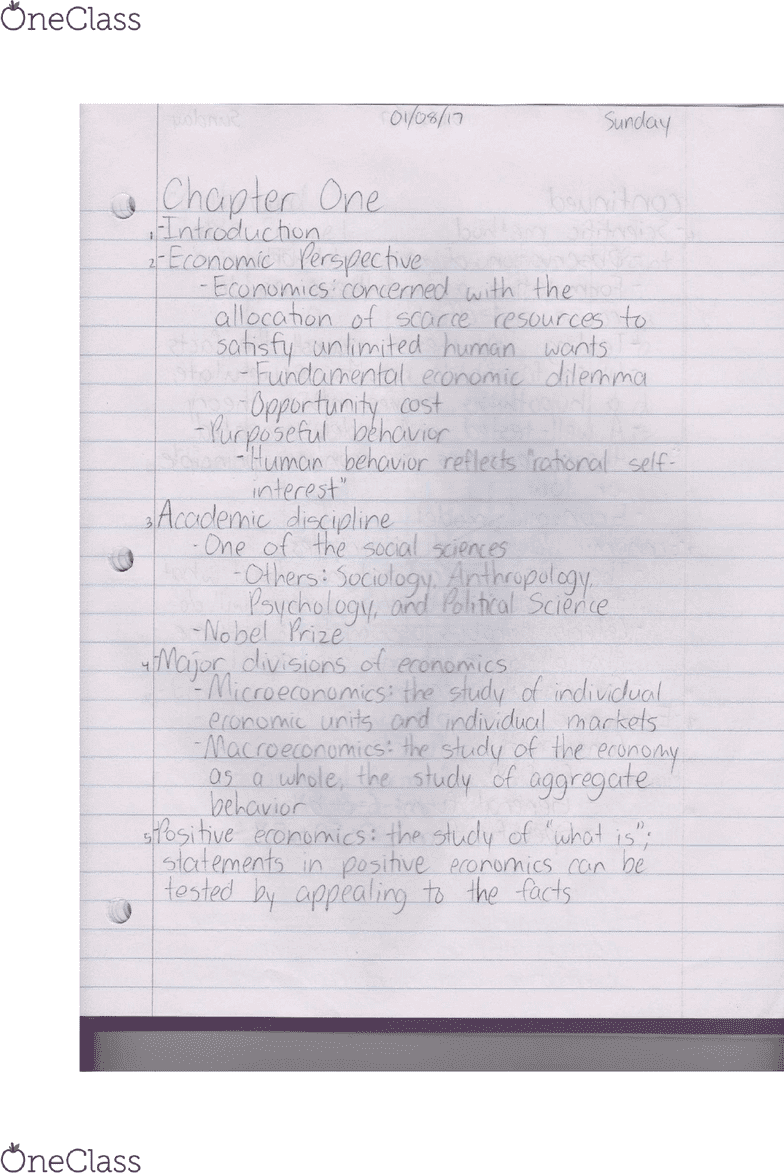 OneClass
01/08/17 Sunday
Chapter One
1-Introduction
2-Economic Perspective
-Economics: concerned with the
allocation of scarce resources to
satisfy unlimited human wants
-Fundamental economic dilemma
-Opportunity cost
-Purposeful behavior
-Human behavior reflects "rational self-
interest"
3 Academic discipline
-One of the social sciences
-Others: Sociology, Anthropology,
Psychology, and Political Science
-Nobel Prize
4 Major divisions of economics
-Microeconomics: the study of individual
economic units and individual markets
-Macroeconomics: the study of the economy
as a whole, the study of aggregate
behavior
5 Positive economics: the study of "what is";
statements in positive economics can be
tested by appealing to the facts
OneClass